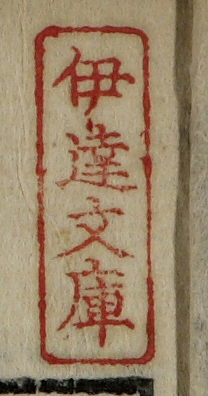 伊達文庫